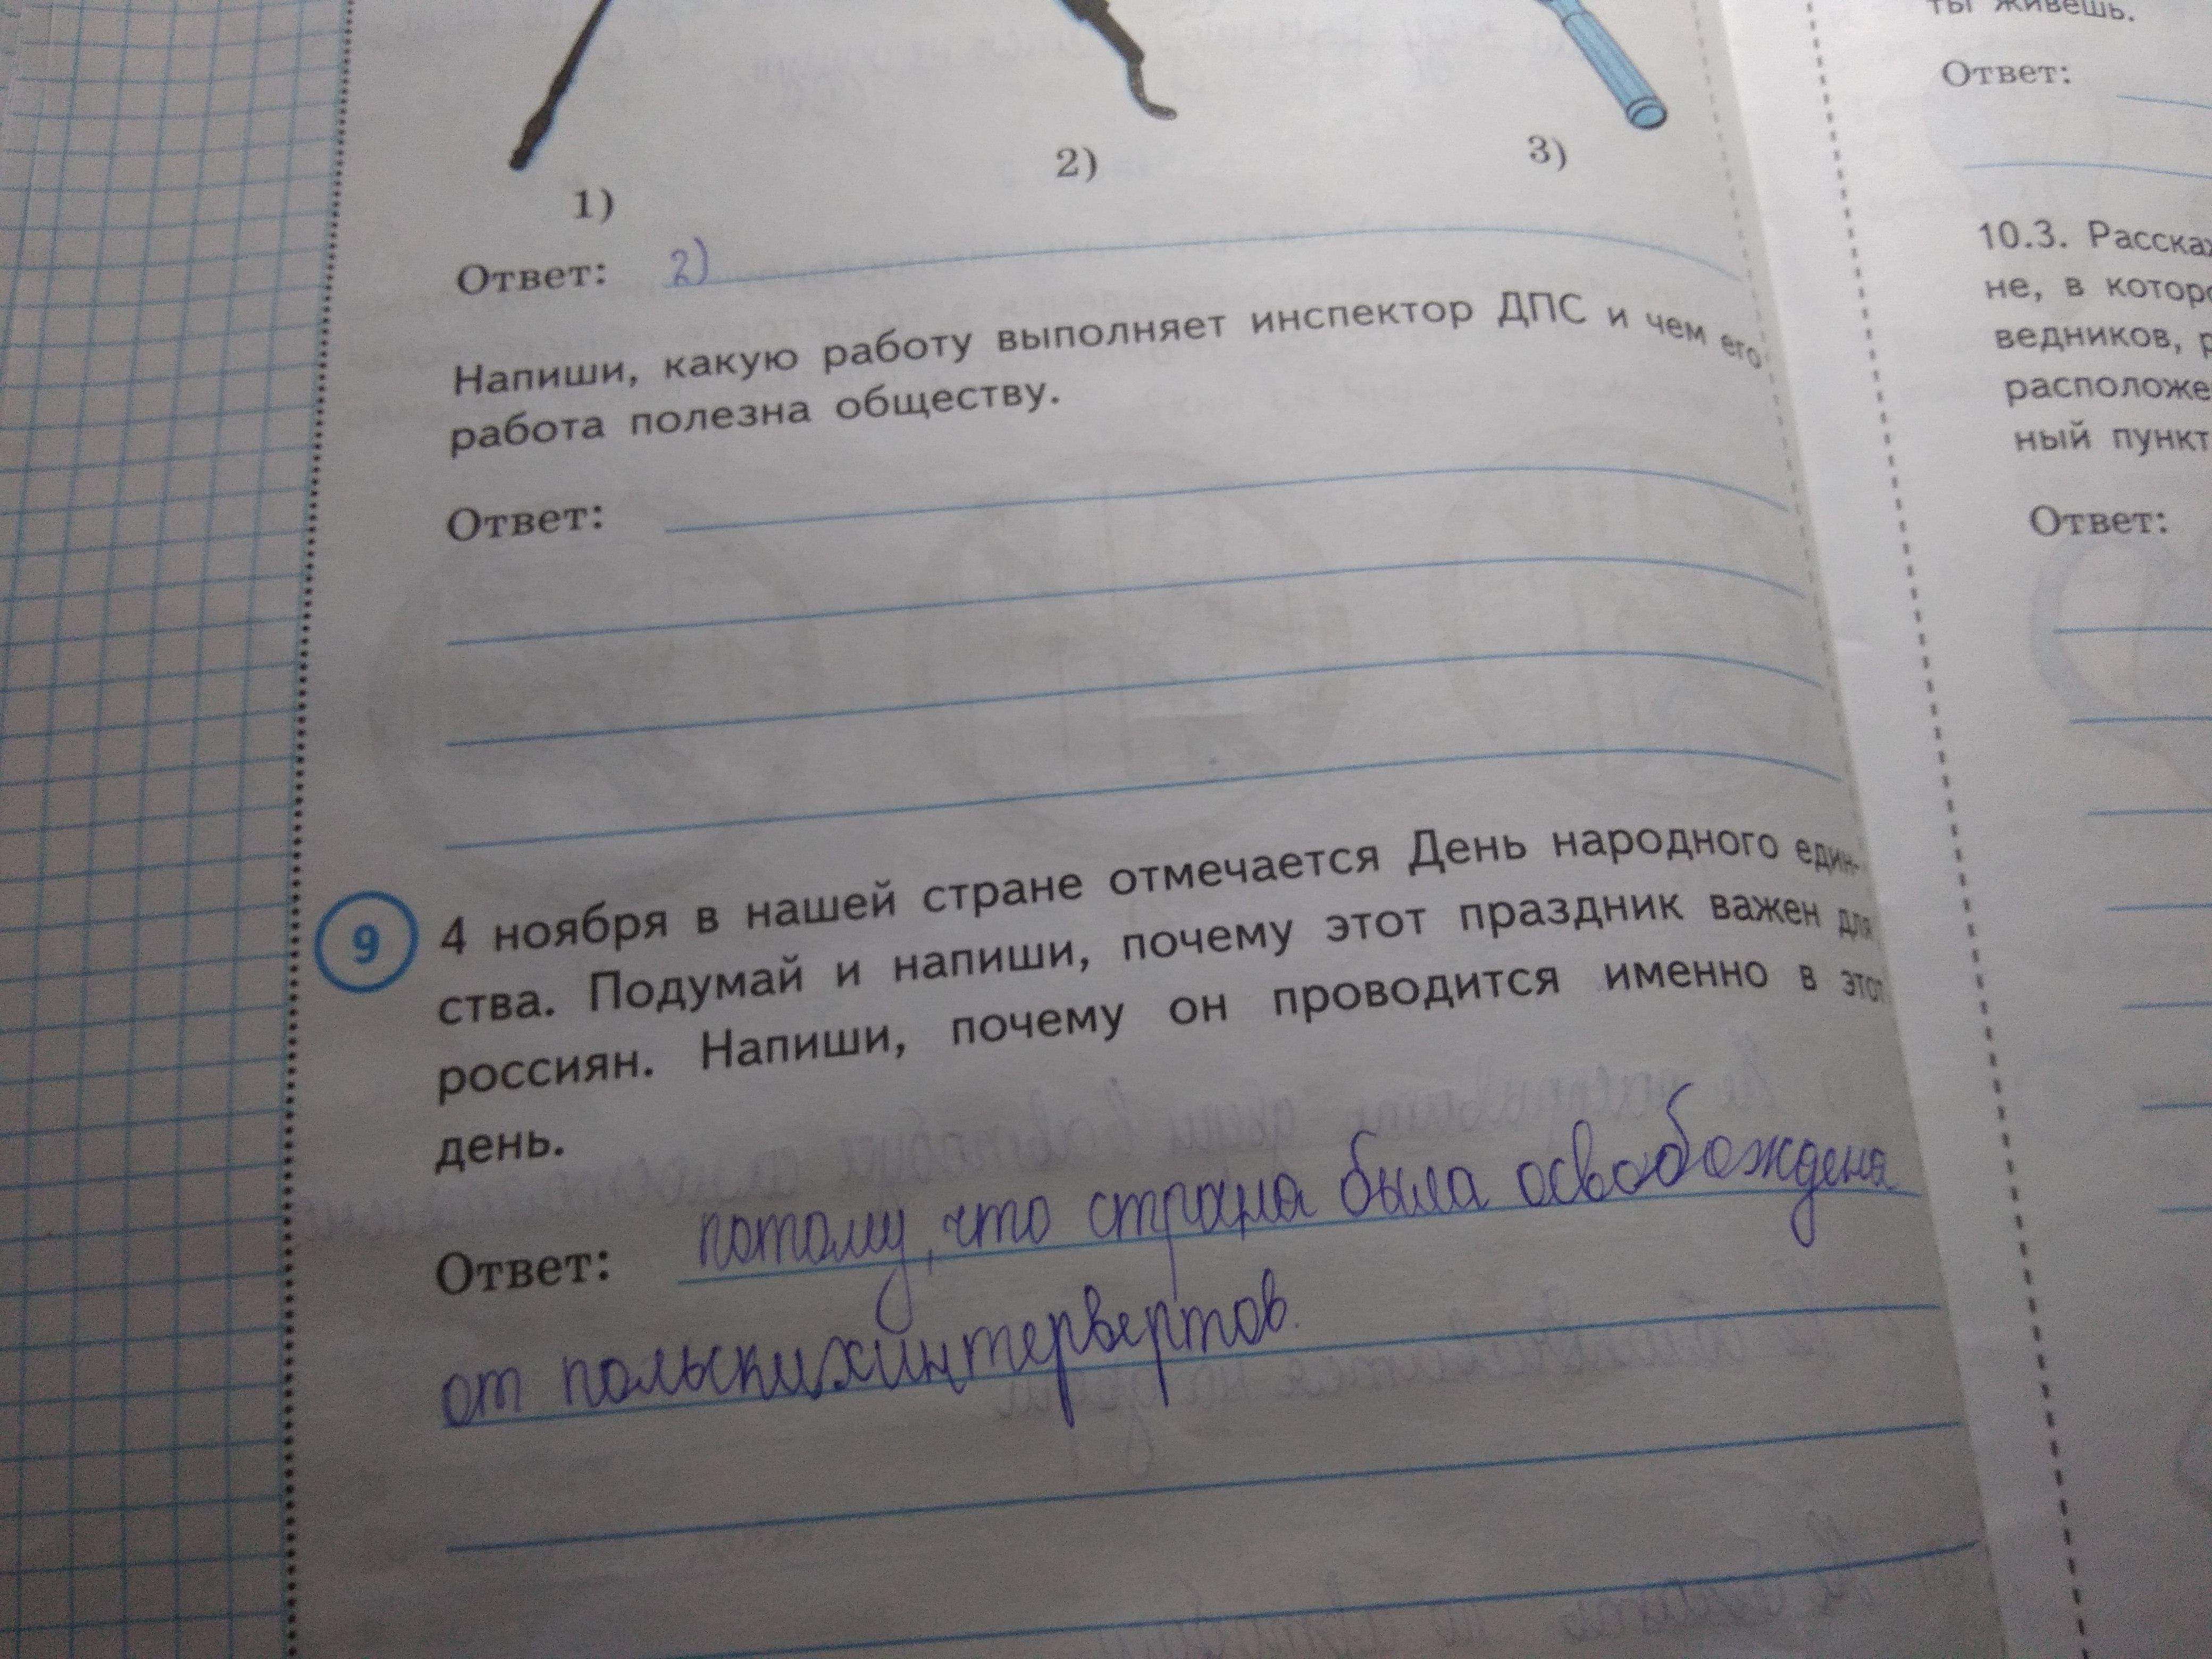 1)
2)
3)
Ответ: 2)
Напиши, какую работу выполняет инспектор ДПС и чем его
работа полезна обществу.
Ответ:
9
4 ноября в нашей стране отмечается День народного един-
ства. Подумай и напиши, почему этот праздник важен для
россиян. Напиши, почему он проводится именно в этот
день.
Ответ: потому, что страна была освобождена
от польскихинтервертов.
ты живешь.
Ответ:
10.3. Расскаж
не, в которо
ведников, р
расположе
ный пункт
Ответ: